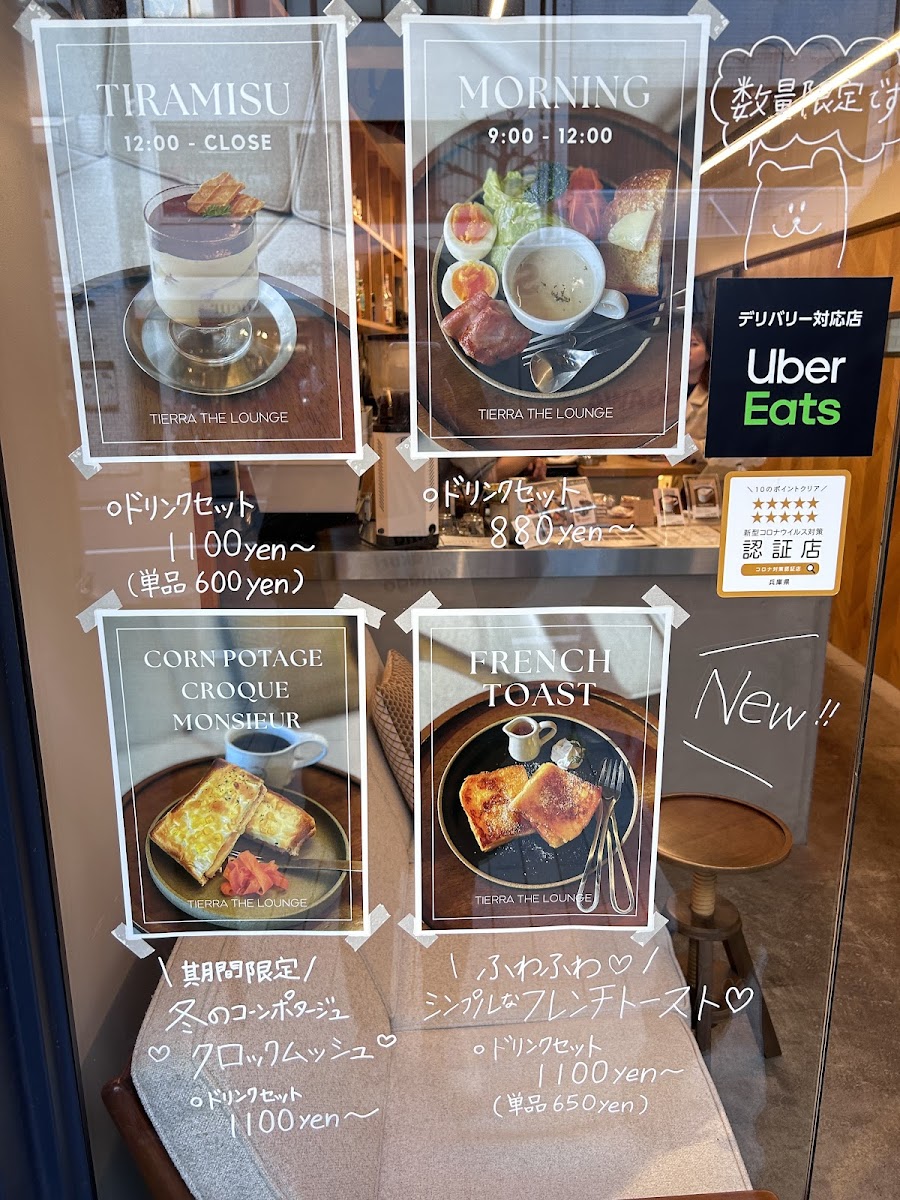 TIRAMISU
12:00 - CLOSE
TIERRA THE LOUNGE
○ドリンクセット
1100yen～
(単品 600yen)
MORNING
9:00 - 12:00
TIERRA THE LOUNGE
○ドリンクセット
880yen～
数量限定です
デリバリー対応店
Uber
Eats
＼10のポイントクリア／
★★★★★
★★★★★
新型コロナウイルス対策
認証店
コロナ対策認証店
兵庫県
New!!
CORN POTAGE
CROQUE
MONSIEUR
TIERRA THE LOUNGE
\ 期間限定 /
冬のコーンポタージュ
♡ クロックムッシュ♡
○ドリンクセット
1100yen～
FRENCH
TOAST
TIERRA THE LOUNGE
\ ふわふわ♡ /
シンプルなフレンチトースト♡
○ドリンクセット
1100yen～
(単品650yen)